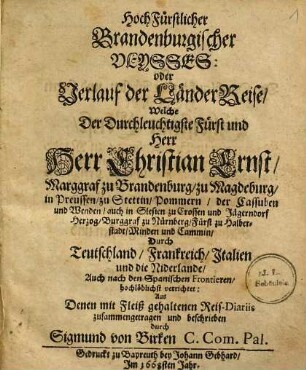 HochFürstlicher
Brandenburgischer
ULYSSES:
oder
Verlauf der LänderReise/
Welche
Der Durchleuchtigste Fürst und
Herr
Herr Christian Ernst/
Marggraf zu Brandenburg/zu Magdeburg/
in Preussen/zu Stettin/Pommern/ der Cassuben
und Wenden/auch in Slesien zu Crossen und Jägerndorf
Herzog/Burggraf zu Nürnberg/Fürst zu Halber-
stadt/Minden und Cammin/
Durch
Teutschland/Frankreich/Italien
und die Niderlande/
Auch nach den Spanischen Frontieren/
hochlöblichst verrichtet:
Aus
Denen mit Fleiß gehaltenen Reis-Diariis
zusammengetragen und beschrieben
durch
Sigmund von Birken C. Com. Pal.
Gedruckt zu Bayreuth bey Johann Gebhard/
Im 1668sten Jahr.